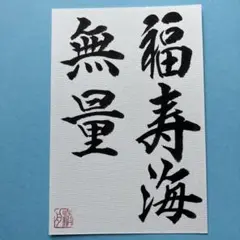 福寿海
無量